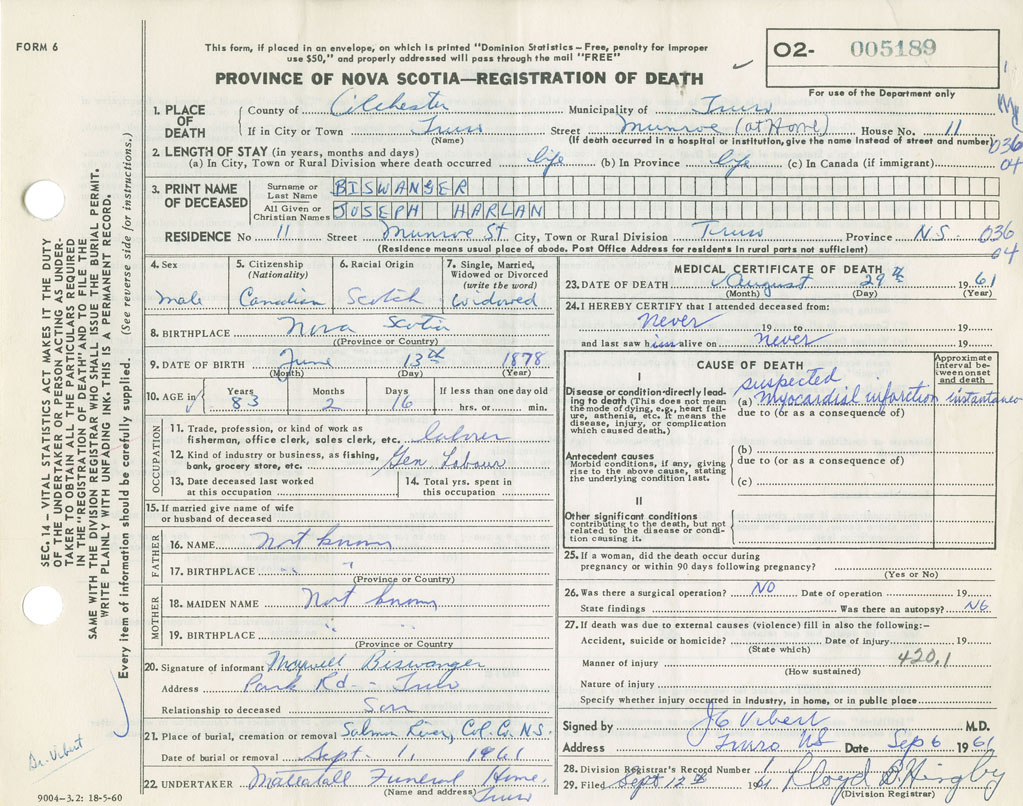 FORM 6
This form, if placed in an envelope, on which is printed "Dominion Statistics — Free, penalty for improper
use $50," and properly addressed will pass through the mail "FREE"
O2- 005189
For use of the Department only
PROVINCE OF NOVA SCOTIA—REGISTRATION OF DEATH
1. PLACE OF DEATH
County of Colchester Municipality of Truro
If in City or Town Truro Street Munroe (at Home) House No. 11
(Name) (If death occurred in a hospital or institution, give the name instead of street and number)
036
04
2. LENGTH OF STAY (in years, months and days)
(a) In City, Town or Rural Division where death occurred life (b) In Province life (c) In Canada (if immigrant)
3. PRINT NAME OF DECEASED
Surname or Last Name BISWANGER
All Given or Christian Names JOSEPH HARLAN
RESIDENCE No 11 Street Munroe St City, Town or Rural Division Truro Province N.S.
036
04
(Residence means usual place of abode. Post Office Address for residents in rural parts not sufficient)
4. Sex
male
5. Citizenship (Nationality)
Canadian
6. Racial Origin
Scotch
7. Single, Married, Widowed or Divorced (write the word)
Widowed
8. BIRTHPLACE Nova Scotia
(Province or Country)
9. DATE OF BIRTH June 13th 1878
(Month) (Day) (Year)
10. AGE in
Years Months Days If less than one day old
83 2 16 hrs. or min.
OCCUPATION
11. Trade, profession, or kind of work as
fisherman, office clerk, sales clerk, etc. laborer
12. Kind of industry or business, as fishing,
bank, grocery store, etc. Gen Labour
13. Date deceased last worked
at this occupation
14. Total yrs. spent in
this occupation
15. If married give name of wife
or husband of deceased
FATHER
16. NAME Not known
17. BIRTHPLACE " "
(Province or Country)
MOTHER
18. MAIDEN NAME Not known
19. BIRTHPLACE " "
(Province or Country)
20. Signature of informant Maxwell Biswanger
Address Park Rd - Truro
Relationship to deceased Son
21. Place of burial, cremation or removal Salmon River, Col. Co. N.S.
Date of burial or removal Sept. 1, 1961
22. UNDERTAKER Mattatall Funeral Home
(Name and address) Truro
MEDICAL CERTIFICATE OF DEATH
23. DATE OF DEATH August 29th 1961
(Month) (Day) (Year)
24. I HEREBY CERTIFY that I attended deceased from:
Never 19 to 19
and last saw him alive on never 19
CAUSE OF DEATH
Approximate interval between onset and death
I
Disease or condition directly leading to death (This does not mean
the mode of dying, e.g., heart failure, asthenia, etc. It means the
disease, injury, or complication
which caused death.)
suspected
(a) myocardial infarction instantaneo
due to (or as a consequence of)
Antecedent causes
Morbid conditions, if any, giving
rise to the above cause, stating
the underlying condition last.
(b)
due to (or as a consequence of)
(c)
II
Other significant conditions
contributing to the death, but not
related to the disease or condition causing it.
25. If a woman, did the death occur during
pregnancy or within 90 days following pregnancy?
(Yes or No)
26. Was there a surgical operation? NO Date of operation 19
State findings Was there an autopsy? No
27. If death was due to external causes (violence) fill in also the following:—
Accident, suicide or homicide? Date of injury 19
(State which)
Manner of injury 420.1
(How sustained)
Nature of injury
Specify whether injury occurred in industry, in home, or in public place
Signed by J C Vibert M.D.
Address Truro NS Date Sep 6 1961
28. Division Registrar's Record Number
29. Filed Sept 12th 19
(Division Registrar)
SEC. 14 — VITAL STATISTICS ACT MAKES IT THE DUTY
OF THE UNDERTAKER OR PERSON ACTING AS UNDER-
TAKER TO OBTAIN ALL THE PARTICULARS REQUIRED
IN THE "REGISTRATION OF DEATH" AND TO FILE THE
SAME WITH THE DIVISION REGISTRAR WHO SHALL ISSUE THE BURIAL PERMIT.
WRITE PLAINLY WITH UNFADING INK. THIS IS A PERMANENT RECORD.
Every item of information should be carefully supplied. (See reverse side for instructions.)
Dr. Vibert
9004-3.2: 18-5-60